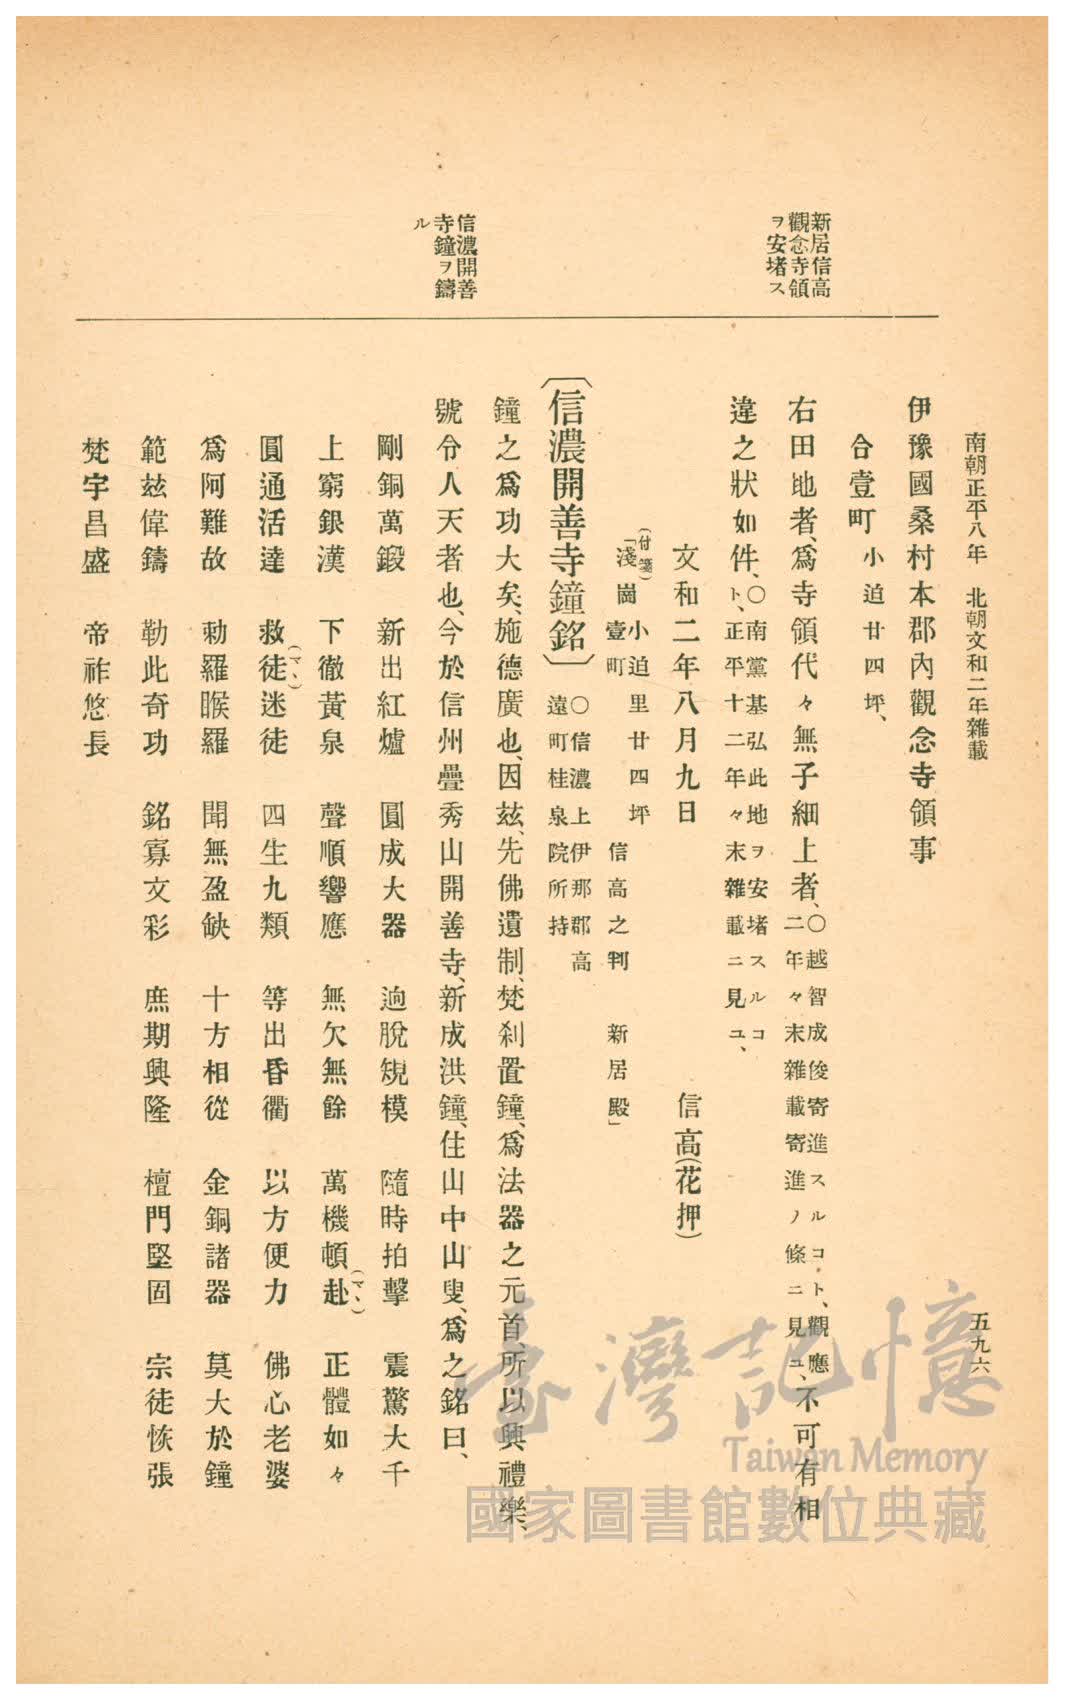 南朝正平八年　北朝文和二年雜載
五九六
新居信高
觀念寺領
ヲ安堵ス
信濃開善
寺鐘ヲ鑄
ル
伊豫國桑村本郡內觀念寺領事
合壹町　小迫廿四坪、
右田地者、爲寺領代々無子細上者、〇越智成俊寄進スルコト、觀應二年々末雜載寄進ノ條ニ見ユ、不可有相
違之狀如件、〇南黨基弘此地ヲ安堵スルコト、正平十二年々末雜載ニ見ユ、
文和二年八月九日　信高(花押)
(付箋)「淺崗小迫里廿四坪壹町　信高之判　新居殿」
〔信濃開善寺鐘銘〕〇信濃上伊那郡高遠町桂泉院所持
鐘之爲功大矣、施德廣也、因玆、先佛遺制、梵刹置鐘、爲法器之元首、所以興禮樂、
號令人天者也、今於信州疊秀山開善寺、新成洪鐘、住山中山叟、爲之銘曰、
剛銅萬鍛　新出紅爐　圓成大器　逈脫規模　隨時拍擊　震驚大千
上窮銀漢　下徹黃泉　聲順響應　無欠無餘　萬機頓赴(マヽ)　正體如々
圓通活達　救徒(マヽ)迷徒　四生九類　等出昏衢　以方便力　佛心老婆
爲阿難故　勅羅睺羅　聞無盈缺　十方相從　金銅諸器　莫大於鐘
範玆偉鑄　勒此奇功　銘寡文彩　庶期興隆　檀門堅固　宗徒恢張
梵宇昌盛　帝祚悠長
臺灣記憶
Taiwan Memory
國家圖書館數位典藏